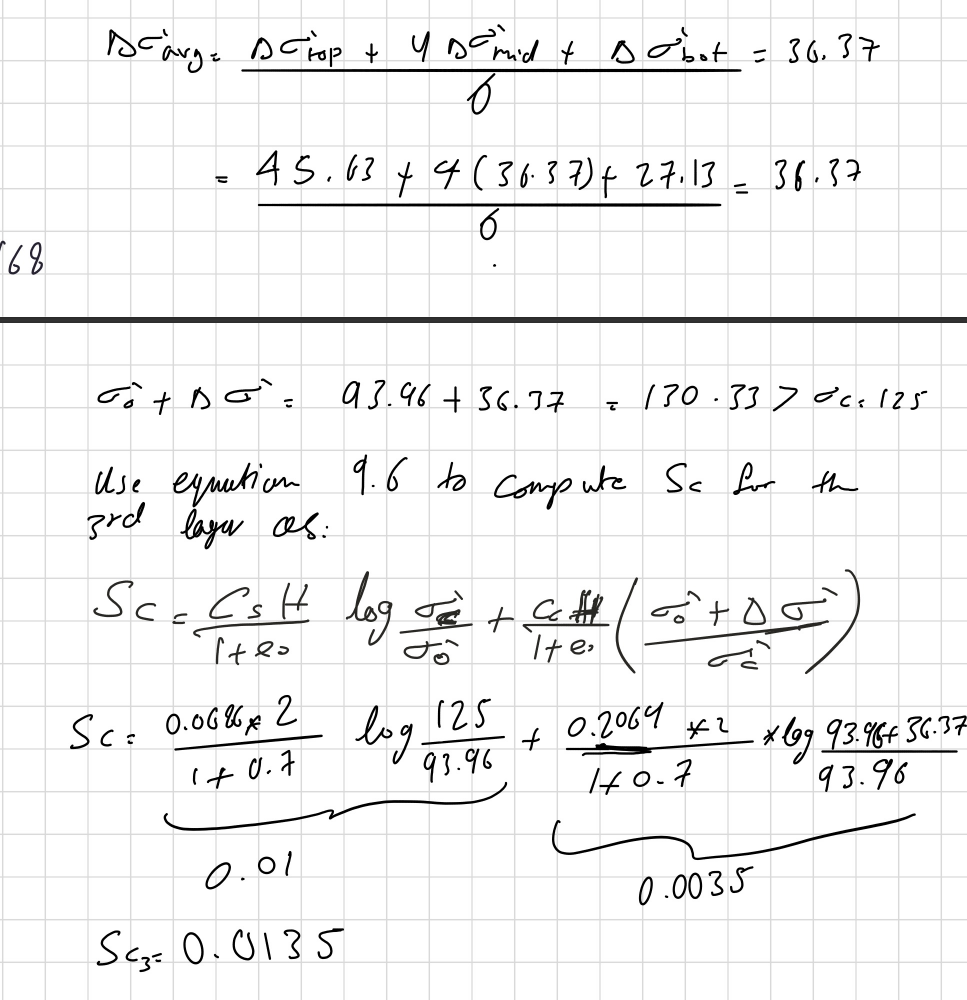 Δσ'avg = (Δσ'top + 4 Δσ'mid + Δσ'bot) / 6 = 36.37
= (45.63 + 4(36.37) + 27.13) / 6 = 36.37
168
σ₀' + Δσ' = 93.96 + 36.37 = 130.33 > σc = 125
Use equation 9.6 to compute Sc for the
3rd layer as:
Sc = (Cs H)/(1+e₀) log (σc'/σ₀') + (Cc H)/(1+e₀) ((σ₀' + Δσ')/σc')
Sc = (0.0686 * 2)/(1 + 0.7) log (125/93.96) + (0.2064 * 2)/(1 + 0.7) * log (93.96 + 36.37)/93.96
0.01
0.0035
Sc₃ = 0.0135